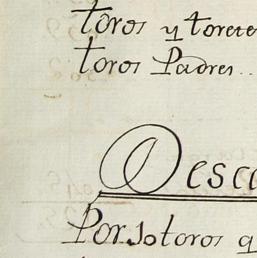 toros y torete
toros Padres..
Desca
Por 10 toros q